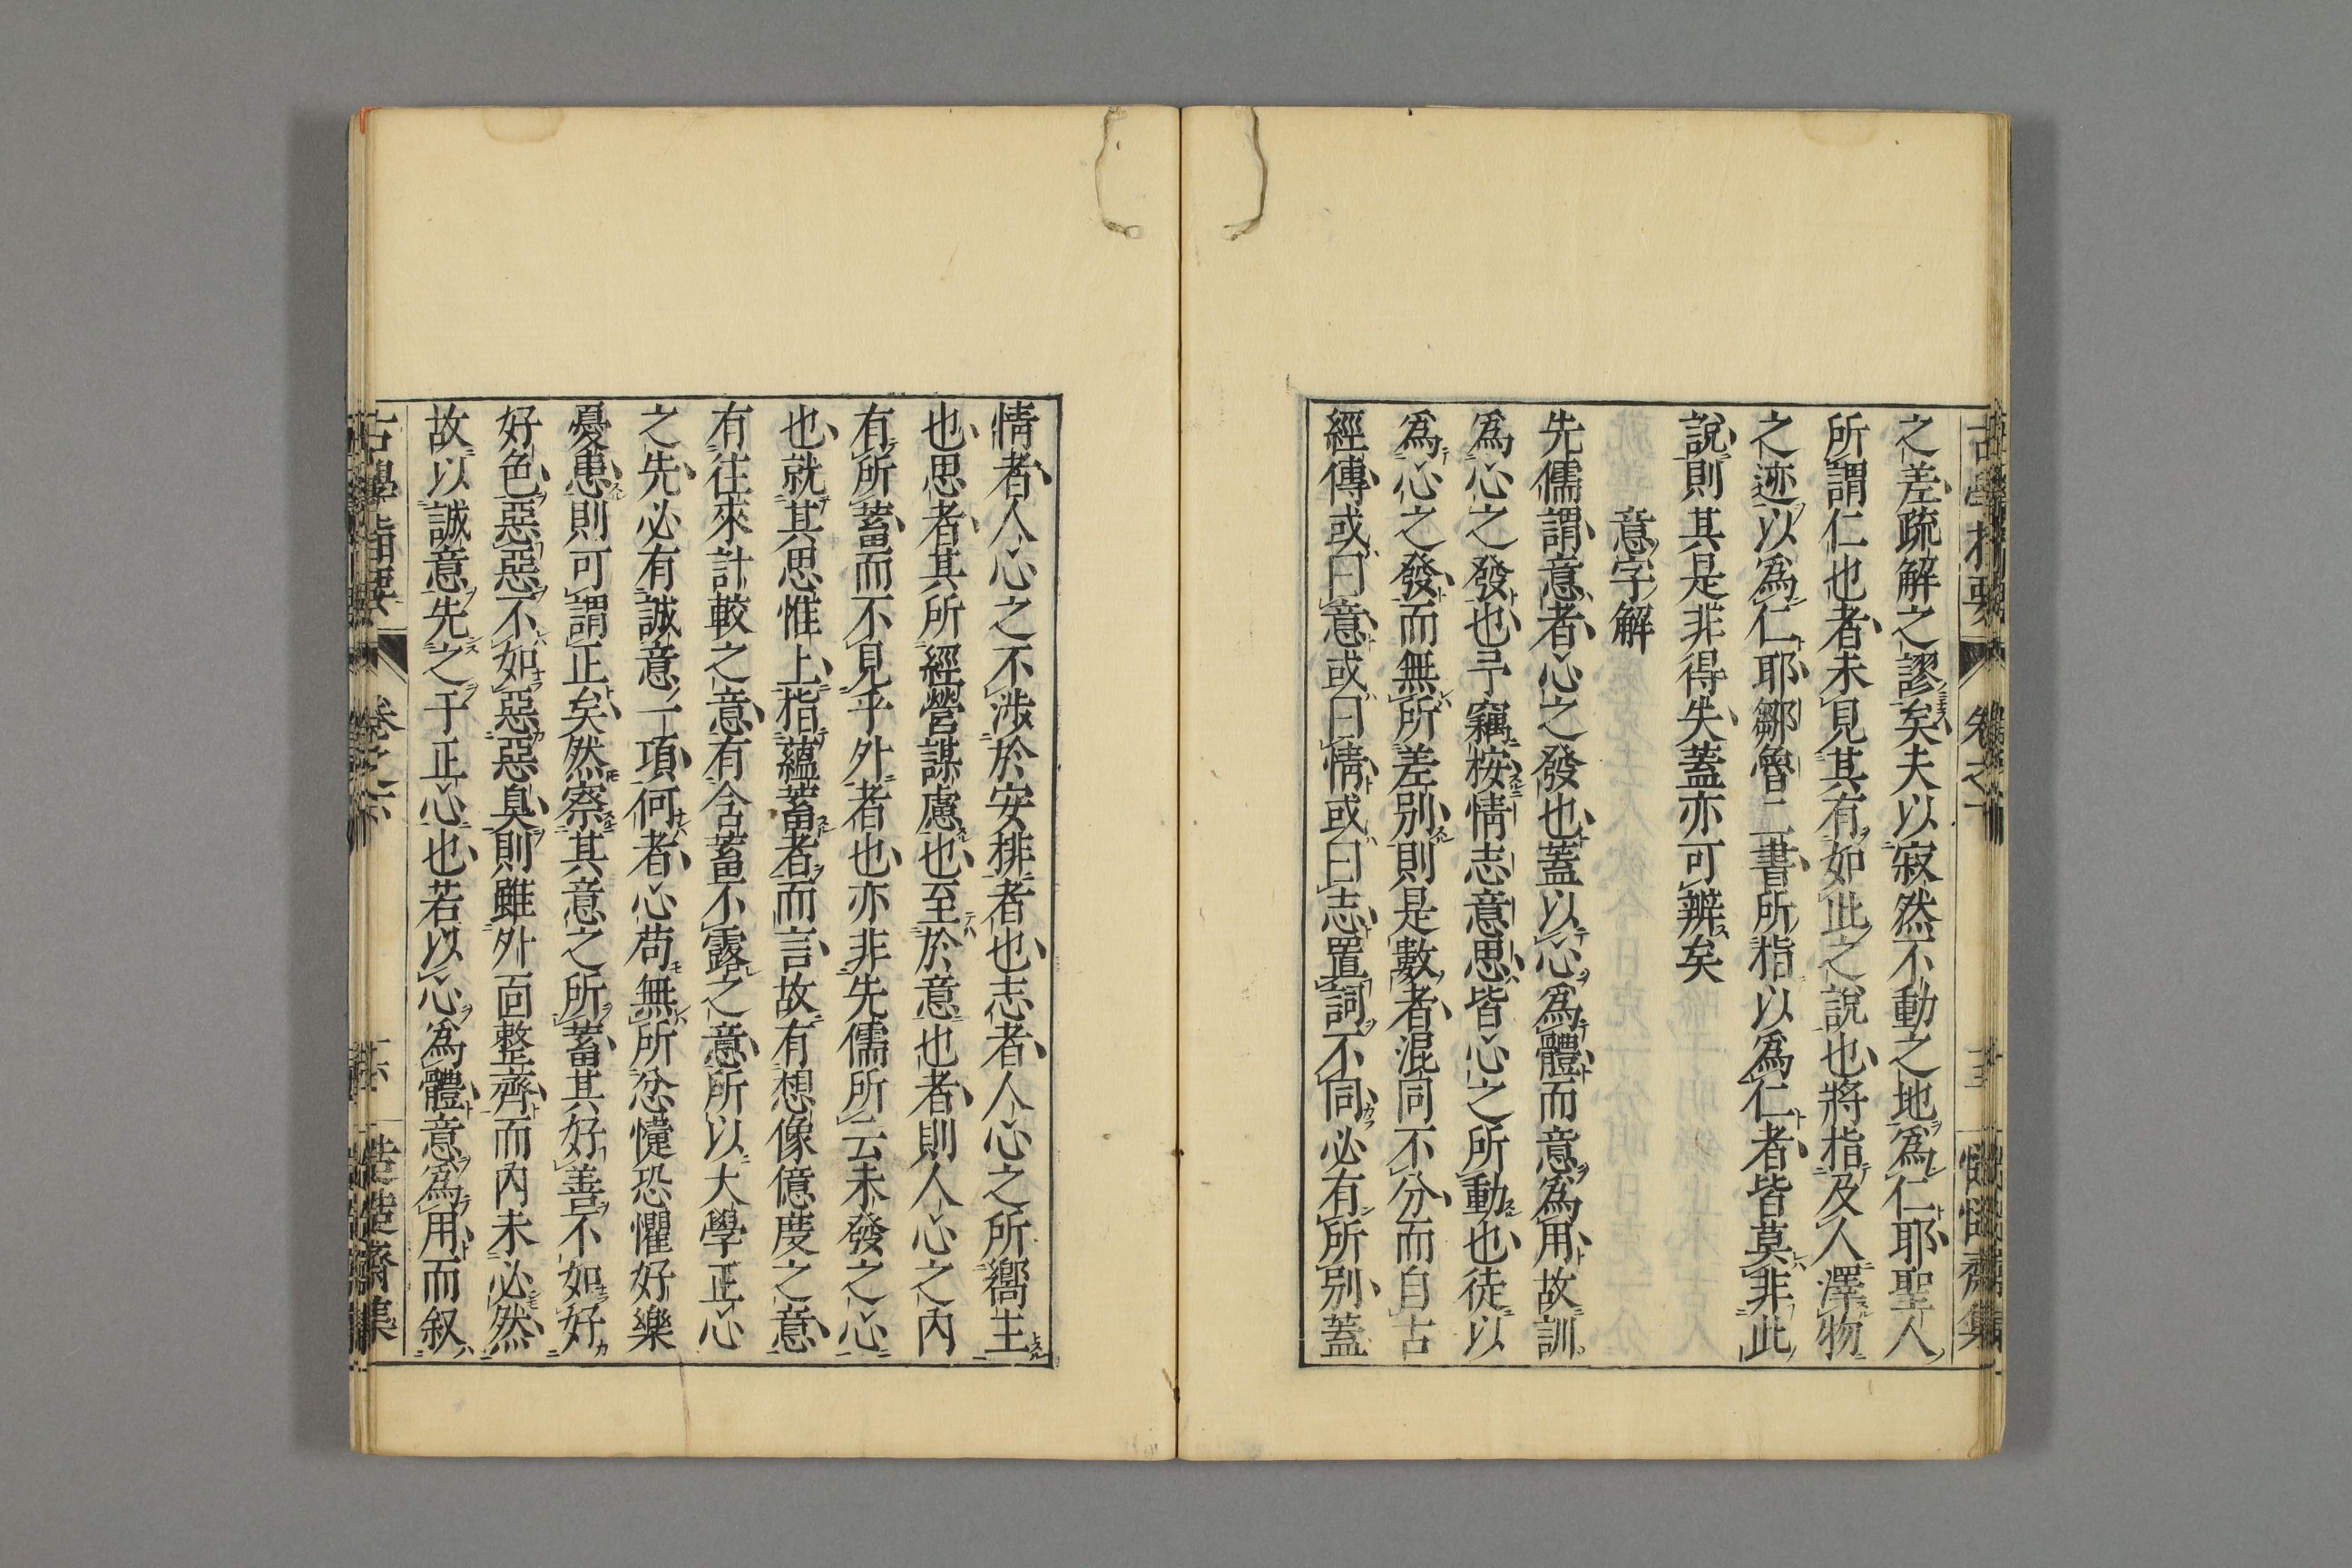 之差疏解之謬矣夫以寂然不動之地爲仁耶聖人
所謂仁也者未見其有如此之說也將指及人澤物
之迹以爲仁耶鄒魯二書所指以爲仁者皆莫非此
說則其是非得失蓋亦可辨矣
意字解
先儒謂意者心之發也蓋以心爲體而意爲用故訓
爲心之發也予竊按情志意思皆心之所動也徒以
爲心之發而無所差別則是數者混同不分而自古
經傳或曰意或曰情或曰志置詞不同必有所別蓋
情者人心之不涉於安排者也志者人心之所嚮主
也思者其所經營謀慮也至於意也者則人心之內
有所蓄而不見乎外者也亦非先儒所云未發之心
也就其思惟上指蘊蓄者而言故有想像億度之意
有往來計較之意有含蓄不露之意所以大學正心
之先必有誠意一項何者心苟無所忿懥恐懼好樂
憂患則可謂正矣然察其意之所蓄其好善不如好
好色惡惡不如惡惡臭則雖外面整齊而內未必然
故以誠意先之于正心也若以心爲體意爲用而叙
古學指要
卷之